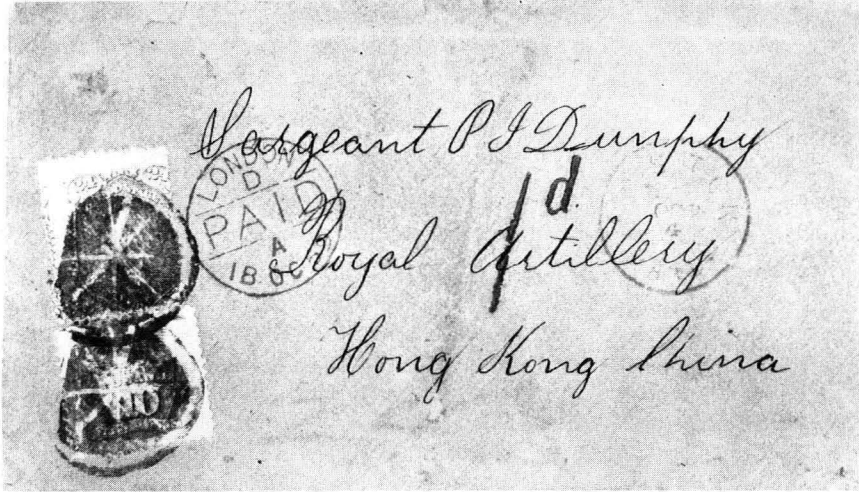 Sargeant P J Dunphy
LONDON
D
PAID
A
1 d.
18
Royal Artillery
Hong Kong China